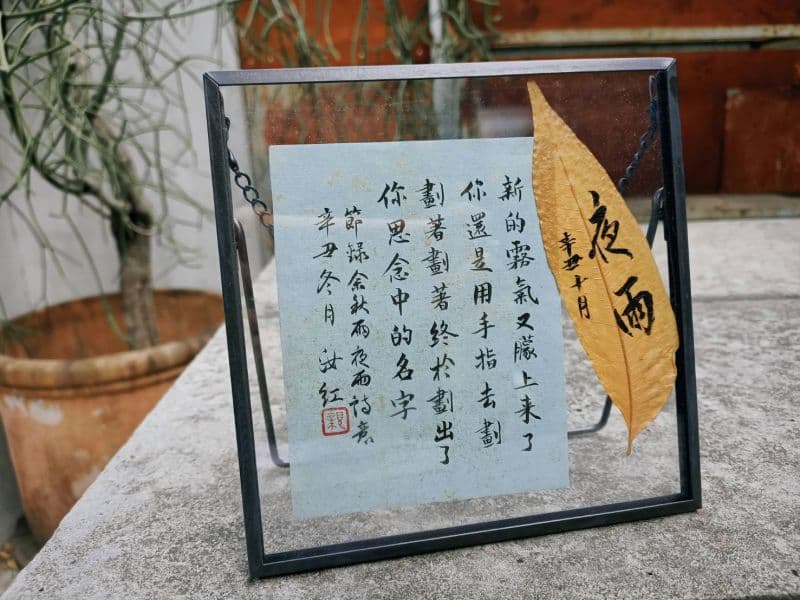 夜雨
辛丑十月
新的霧氣又朦上来了
你還是用手指去劃
劃著劃著終於劃出了
你思念中的名字
節録余秋雨夜雨詩意
辛丑冬月 汝红